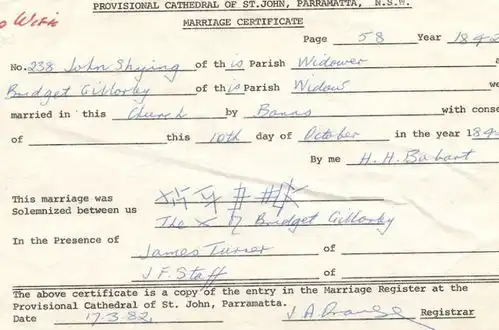 PROVISIONAL CATHEDRAL OF ST.JOHN, PARRAMATTA, N.S.W.
MARRIAGE CERTIFICATE
Page 58 Year 1842
No. 238 John Shying of this Parish Widower
Bridget Gillorby of this Parish Widow
married in this Church by Banns with conse
of this 10th day of October in the year 184
By me H. H. Bobart
This marriage was
Solemnized between us
The X of Bridget Gillorby
In the Presence of
James Turner of
J F. Staff of
The above certificate is a copy of the entry in the Marriage Register at the
Provisional Cathedral of St. John, Parramatta.
Date 17.3.82. Registrar